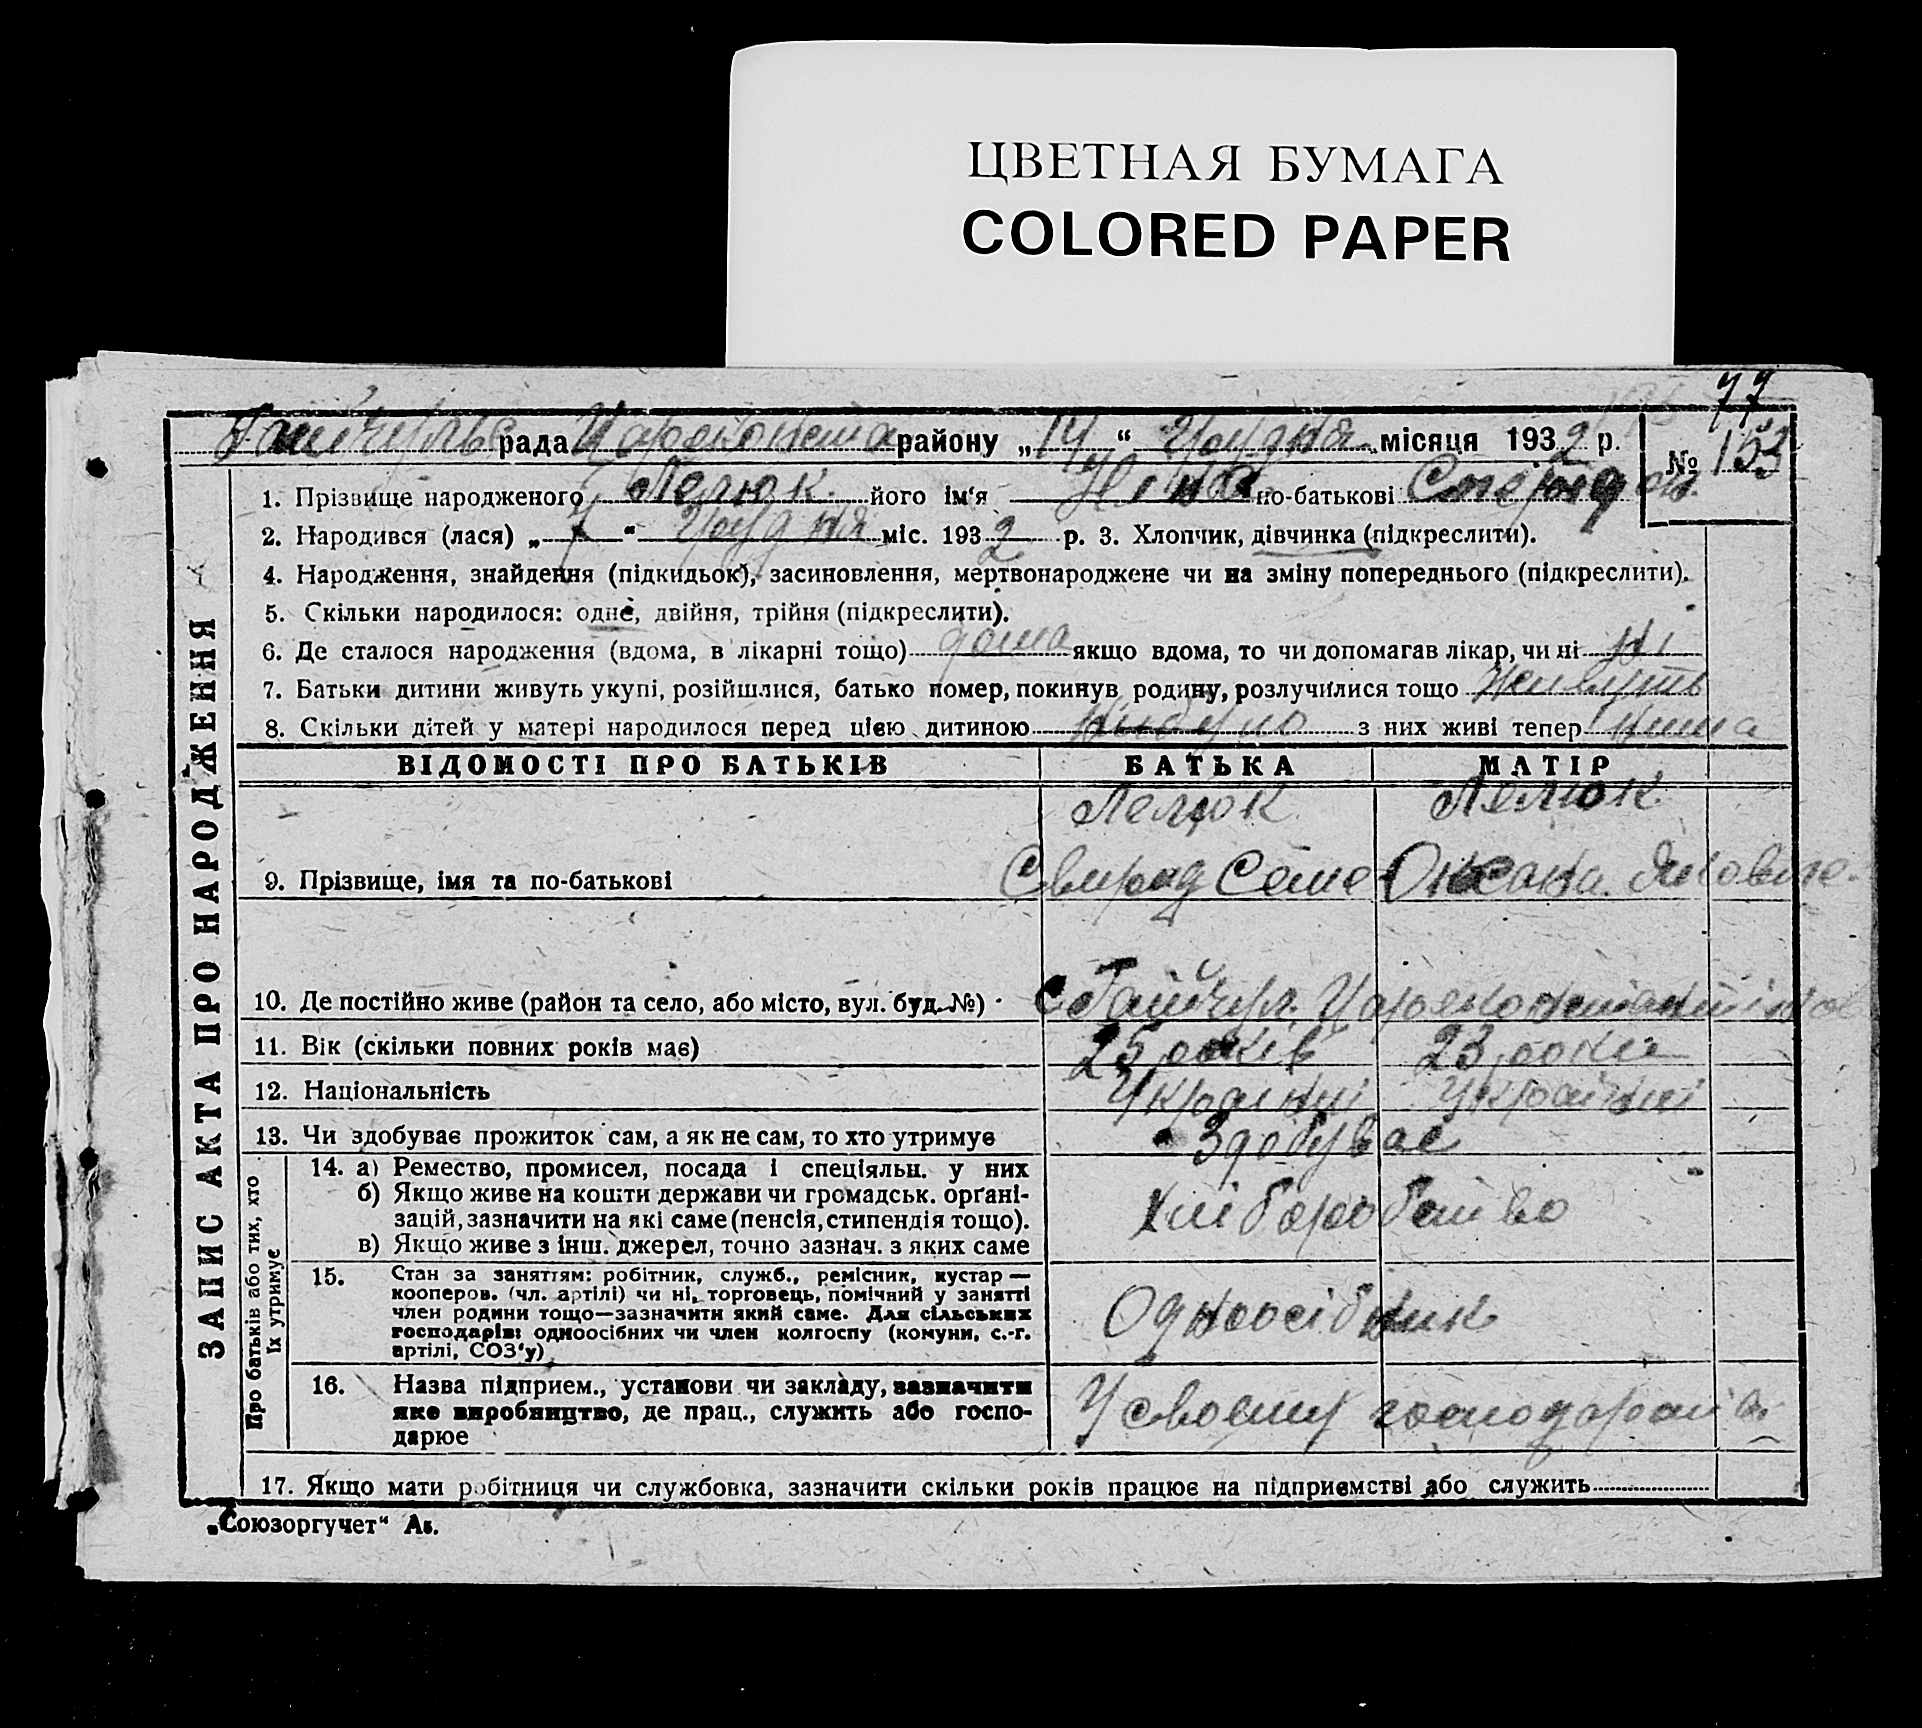 ЦВЕТНАЯ БУМАГА
COLORED PAPER
77
рада району „14“ Грудня місяця 1932 р. № 153
1. Прізвище народженого Лелюк його ім‘я по-батькові
2. Народився (лася) „7“ Грудня міс. 1932 р. 3. Хлопчик, дівчинка (підкреслити).
4. Народження, знайдення (підкидьок), засиновлення, мертвонароджене чи на зміну попереднього (підкреслити).
5. Скільки народилося: одне, двійня, трійня (підкреслити).
6. Де сталося народження (вдома, в лікарні тощо) дома якщо вдома, то чи допомагав лікар, чи ні ні
7. Батьки дитини живуть укупі, розійшлися, батько помер, покинув родину, розлучилися тощо Живуть
8. Скільки дітей у матері народилося перед цією дитиною небуло з них живі тепер нима
ВІДОМОСТІ ПРО БАТЬКІВ БАТЬКА МАТІР
Лелюк Лелюк
9. Прізвище, імя та по-батькові Свирид Семе Оксана Яковле-
10. Де постійно живе (район та село, або місто, вул. буд. №) с Гайчул.
11. Вік (скільки повних років має) 25 років 23 роки
12. Національність
13. Чи здобуває прожиток сам, а як не сам, то хто утримує Здобуває
14. а) Ремество, промисел, посада і спеціяльн. у них
б) Якщо живе на кошти держави чи громадськ. орґані-
зацій, зазначити на які саме (пенсія, стипендія тощо).
в) Якщо живе з інш. джерел, точно зазнач. з яких саме
Хліборобство
15. Стан за заняттям: робітник, служб., ремісник, кустар —
кооперов. (чл. артілі) чи ні, торговець, помічний у занятті
член родини тощо—зазначити який саме. Для сільських
господарів: одноосібних чи член колгоспу (комуни, с.-г.
артілі, СОЗ‘у)
Одноосібник
16. Назва підприєм., установи чи закладу, зазначити
яке виробництво, де прац., служить або госпо-
дарює
У своєму
17. Якщо мати робітниця чи службовка, зазначити скільки років працює на підприємстві або служить
„Союзоргучет“ А5.
ЗАПИС АКТА ПРО НАРОДЖЕННЯ
Про батьків або тих, хто
їх утримує